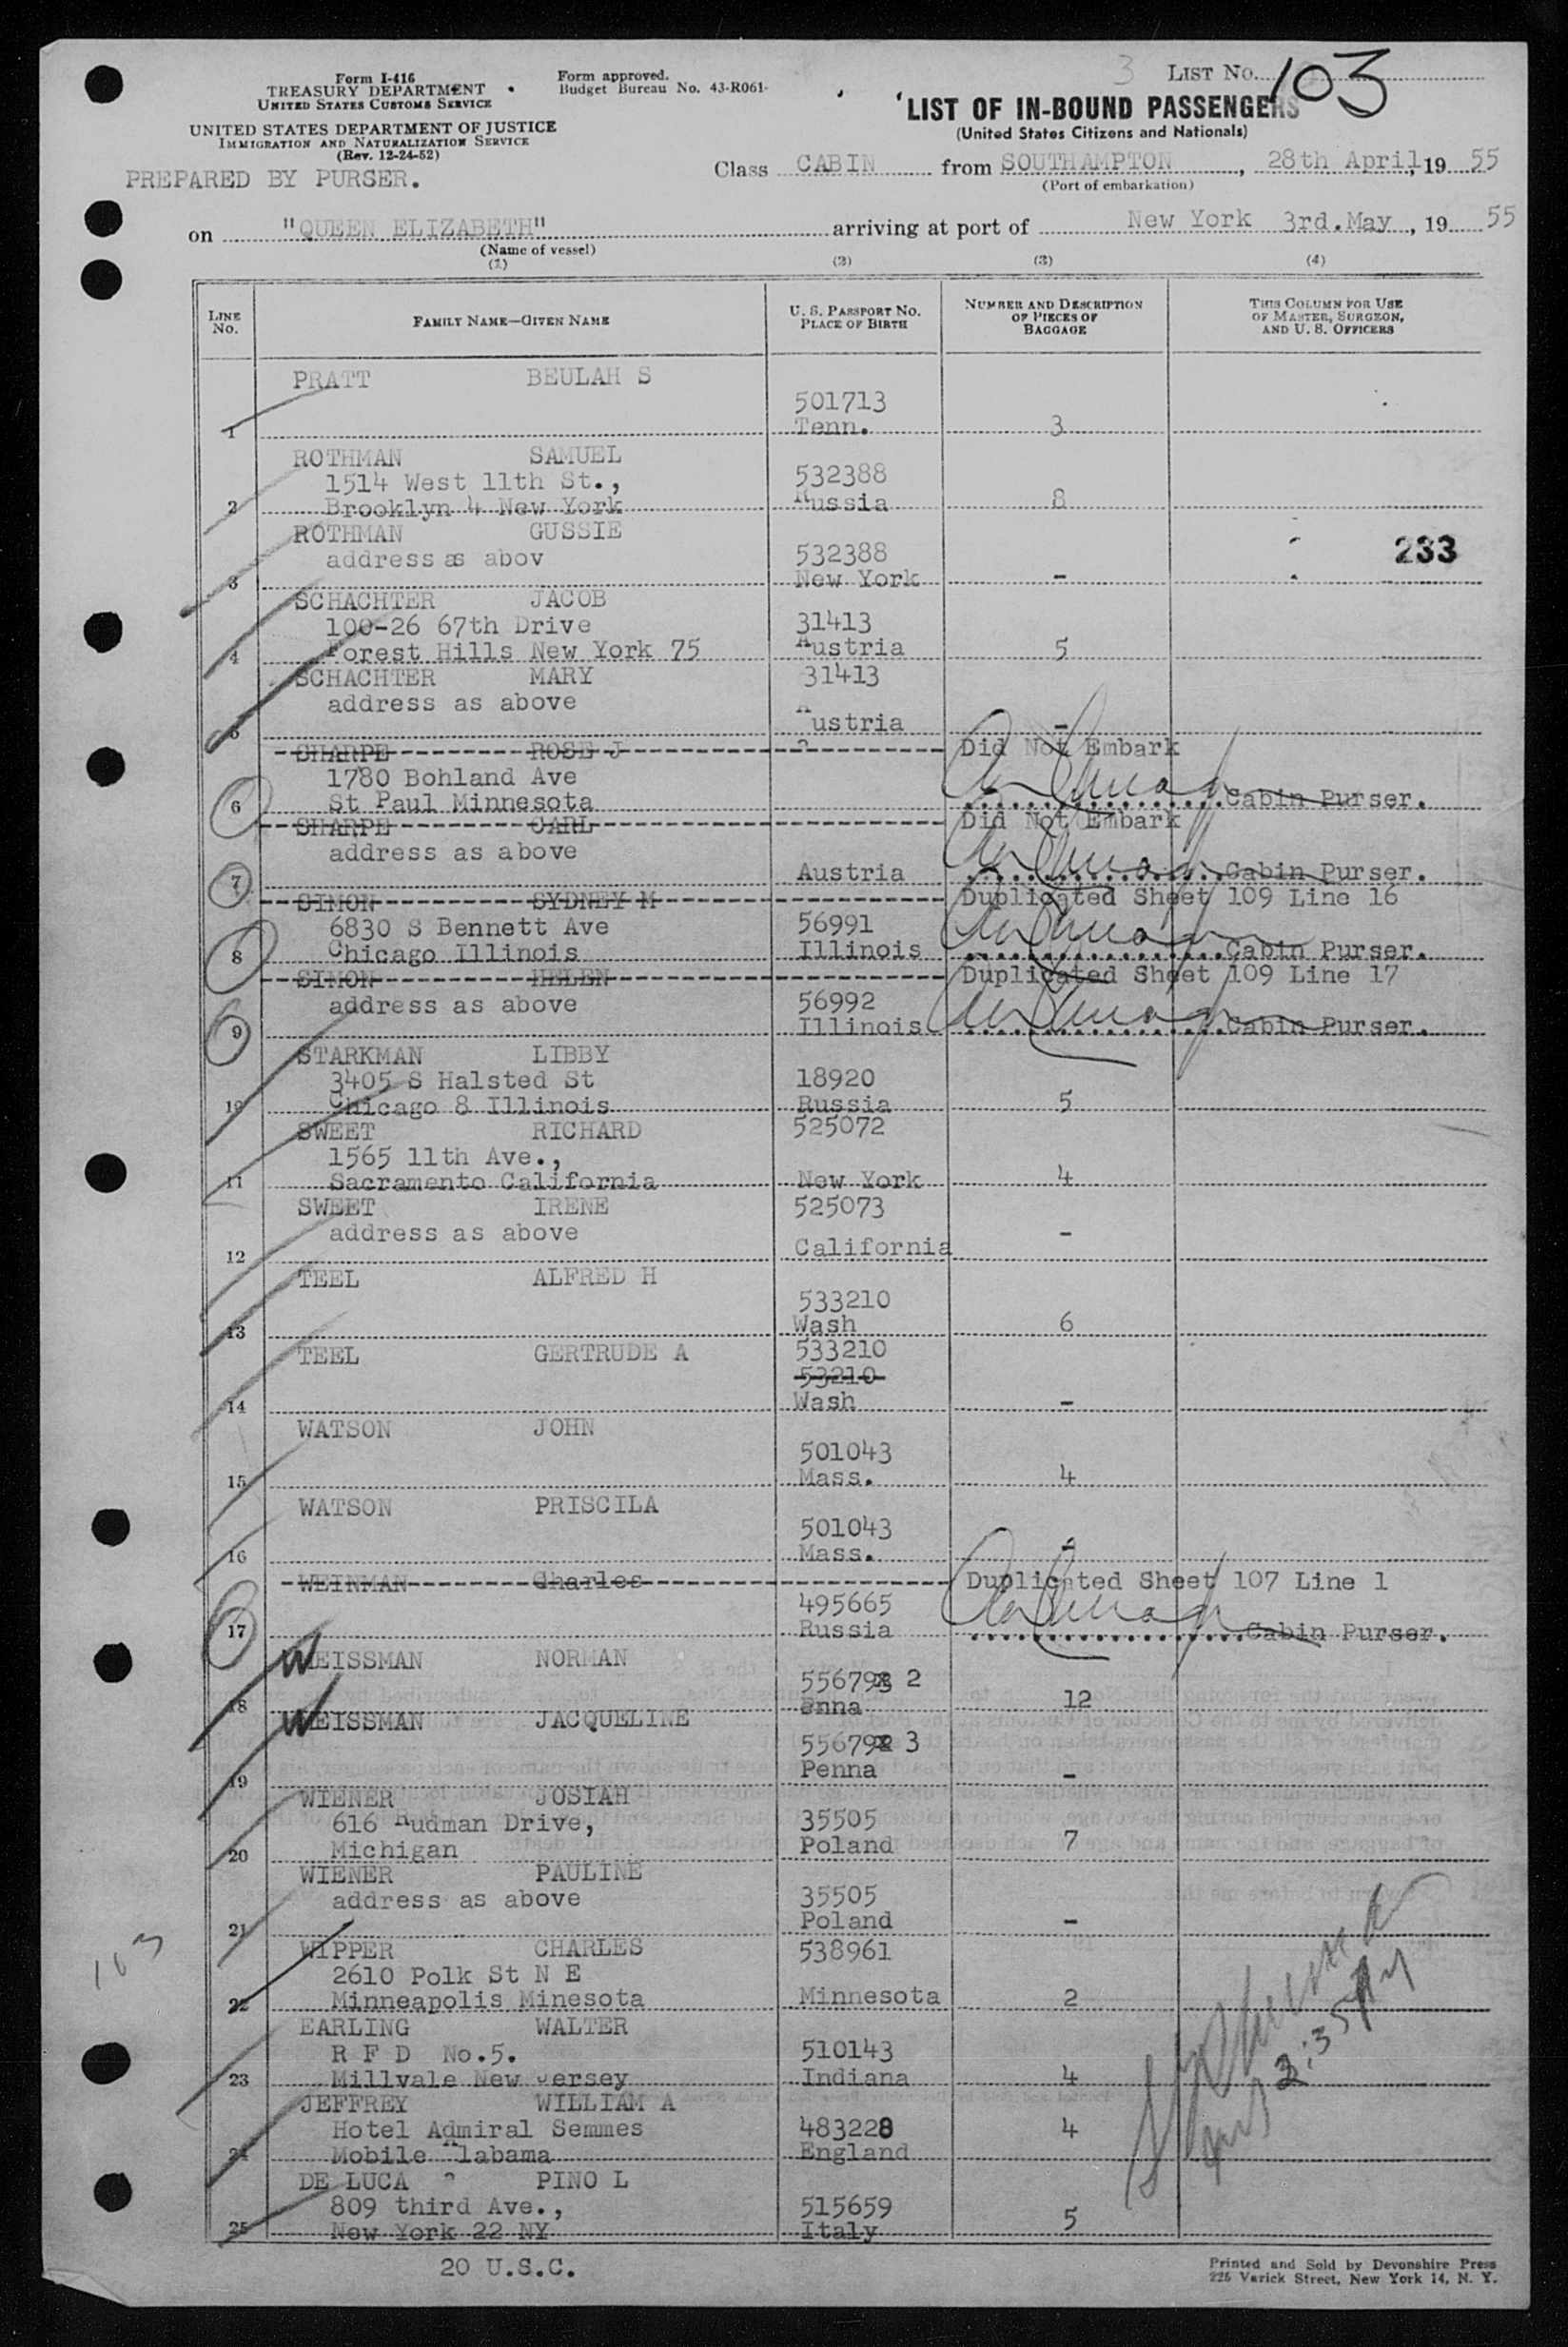 Form I-416
TREASURY DEPARTMENT
UNITED STATES CUSTOMS SERVICE
UNITED STATES DEPARTMENT OF JUSTICE
IMMIGRATION AND NATURALIZATION SERVICE
(Rev. 12-24-52)
PREPARED BY PURSER.
Form approved.
Budget Bureau No. 43-R061-
3 LIST No. 103
LIST OF IN-BOUND PASSENGERS
(United States Citizens and Nationals)
Class CABIN from SOUTHAMPTON, 28th April, 19 55
(Port of embarkation)
on "QUEEN ELIZABETH" arriving at port of New York 3rd. May, 19 55
(Name of vessel)
(1) (2) (3) (4)
LINE No. FAMILY NAME—GIVEN NAME U. S. PASSPORT No. PLACE OF BIRTH NUMBER AND DESCRIPTION OF PIECES OF BAGGAGE THIS COLUMN FOR USE OF MASTER, SURGEON, AND U. S. OFFICERS
PRATT BEULAH S
501713
1 Tenn. 3
ROTHMAN SAMUEL
1514 West 11th St., 532388
2 Brooklyn 4 New York Russia 8
ROTHMAN GUSSIE
address as abov 532388 233
3 New York -
SCHACHTER JACOB
100-26 67th Drive 31413
4 Forest Hills New York 75 Austria 5
SCHACHTER MARY 31413
address as above
5 Austria -
SHARPE ROSE J Did Not Embark
1780 Bohland Ave
6 St Paul Minnesota Cabin Purser.
SHARPE CARL Did Not Embark
address as above
7 Austria Cabin Purser.
SIMON SYDNEY M Duplicated Sheet 109 Line 16
6830 S Bennett Ave 56991
8 Chicago Illinois Illinois Cabin Purser.
SIMON HELEN Duplicated Sheet 109 Line 17
address as above 56992
9 Illinois Cabin Purser.
STARKMAN LIBBY
3405 S Halsted St 18920
10 Chicago 8 Illinois Russia 5
SWEET RICHARD 525072
1565 11th Ave.,
11 Sacramento California New York 4
SWEET IRENE 525073
address as above
12 California -
TEEL ALFRED H
533210
13 Wash 6
TEEL GERTRUDE A 533210
53210
14 Wash -
WATSON JOHN
501043
15 Mass. 4
WATSON PRISCILA
501043
16 Mass. -
WEINMAN Charles Duplicated Sheet 107 Line 1
495665
17 Russia Cabin Purser.
WEISSMAN NORMAN
55679 2
18 enna 12
WEISSMAN JACQUELINE
55679 3
19 Penna -
WIENER JOSIAH
616 Audman Drive, 35505
20 Michigan Poland 7
WIENER PAULINE
address as above 35505
21 Poland -
WIPPER CHARLES 538961
2610 Polk St N E
22 Minneapolis Minesota Minnesota 2
EARLING WALTER
R F D No.5. 510143
23 Millvale New Jersey Indiana 4
JEFFREY WILLIAM A
Hotel Admiral Semmes 483228 4
24 Mobile Alabama England
DE LUCA PINO L
809 third Ave., 515659
25 New York 22 NY Italy 5
103
20 U.S.C.
Printed and Sold by Devonshire Press
225 Varick Street, New York 14, N. Y.